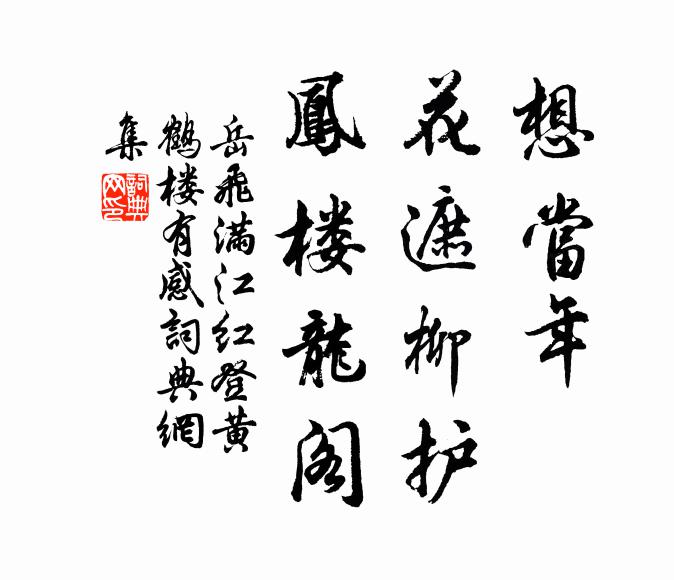 想當年
花遮柳护
鳳楼龍阁
岳飛满江红登黄
鹤楼有感詞典網
集
詞典
网印